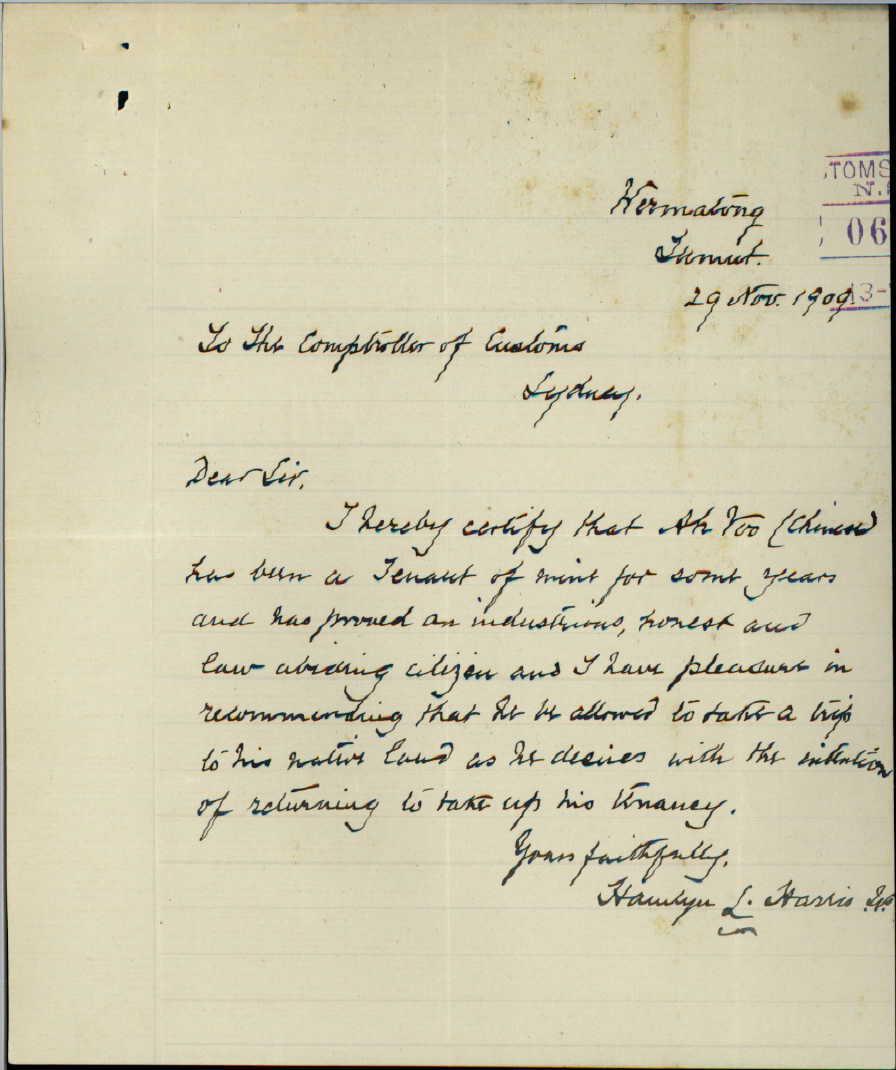 TOMS
N.
06
13-
Wermatong
Tumut.
29 Nov. 1909
To The Comptroller of Customs
Sydney.
Dear Sir,
I hereby certify that Ah Yoo (Chinese)
has been a Tenant of mine for some years
and has proved an industrious, honest and
law abiding citizen and I have pleasure in
recommending that he be allowed to take a trip
to his native land as he desires with the intention
of returning to take up his tenancy.
Yours faithfully,
Hamlyn L. Harris J.P.